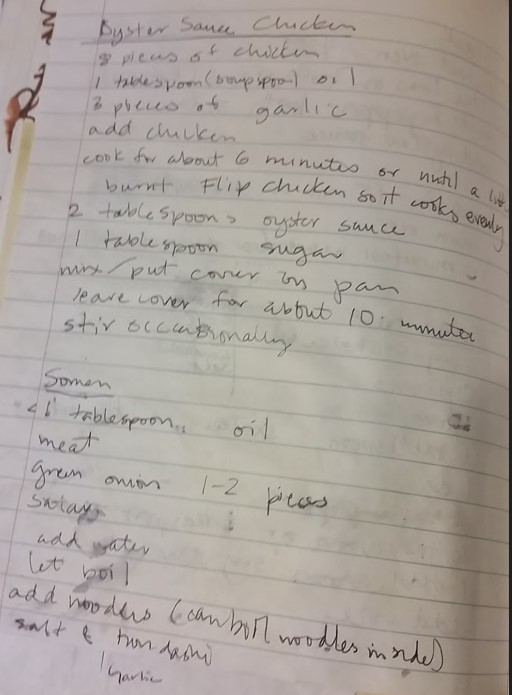 Oyster Sauce Chicken
8 pieces of chicken
1 tablespoon (soupspoon) oil
3 pieces of garlic
add chicken
cook for about 6 minutes or until a
burnt Flip chicken so it cooks evenly
2 tablespoons oyster sauce
1 tablespoon sugar
mix/put cover on pan
leave cover for about 10 minutes
stir occationally
Somen
<1 tablespoon oil
meat
green onion 1-2 pieces
add water
let boil
add noodles (can boil noodles inside)
salt & hondashi
1 garlic